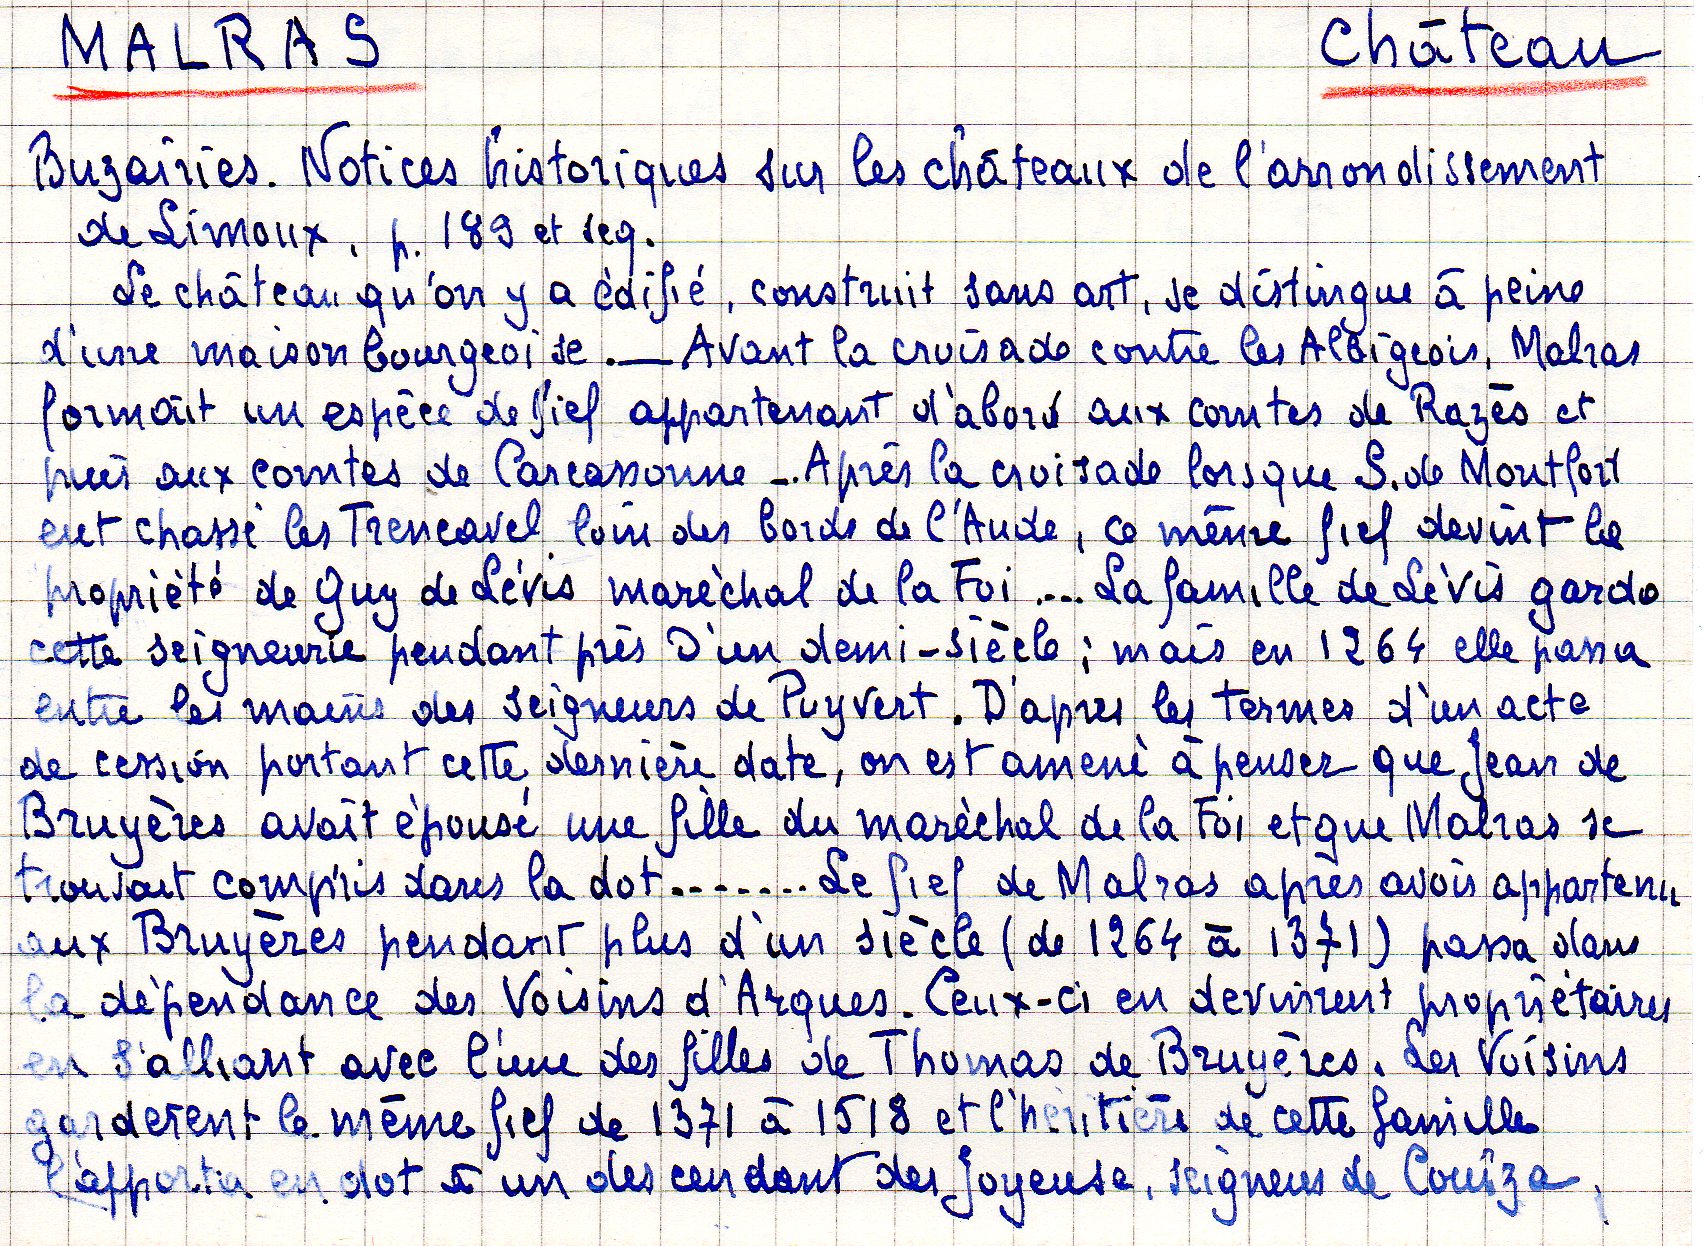 MALRAS Château
Buzairies. Notices historiques sur les châteaux de l'arrondissement
de Limoux, p. 189 et seq.
Le château qu'on y a édifié, construit sans art, se distingue à peine
d'une maison bourgeoise. — Avant la croisade contre les Albigeois, Malras
formait un espèce de fief appartenant d'abord aux comtes de Razès et
puis aux comtes de Carcassonne -. Après la croisade lorsque S. de Montfort
eut chassé les Trencavel loin des bords de l'Aude, ce même fief devint la
propriété de Guy de Lévis maréchal de la Foi .... La famille de Lévis garda
cette seigneurie pendant près d'un demi-siècle ; mais en 1264 elle passa
entre les mains des seigneurs de Puyvert. D'apres les termes d'un acte
de cession portant cette dernière date, on est amené à penser que Jean de
Bruyères avait épousé une fille du maréchal de la Foi et que Malras se
trouvait compris dans la dot........ Le fief de Malras après avoir appartenu
aux Bruyères pendant plus d'un siècle (de 1264 à 1371) passa dans
la dépendance des Voisins d'Arques. Ceux-ci en devinrent propriétaires
en s'alliant avec l'une des filles de Thomas de Bruyères. Les Voisins
gardèrent le même fief de 1371 à 1518 et l'héritière de cette famille
l'apporta en dot à un descendant des Joyeuse, seigneurs de Couïza,